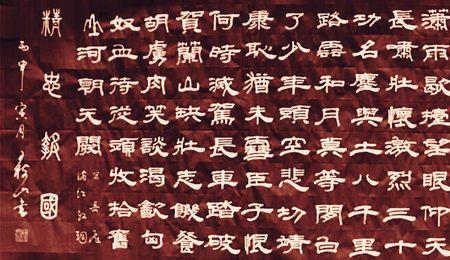 瀟雨歇擡望眼仰天
長嘯壯懷激烈三十
功名塵與土八千里
路雲和月莫等閑白
了少年頭空悲切靖
康恥猶未雪臣子恨
何時滅駕長車踏破
賀蘭山缺壯志饑餐
胡虜肉笑談渴飲匈
奴血待從頭收拾舊
山河朝天闕
宋岳飛
滿江紅詞
精忠報國
丙申寅月山書